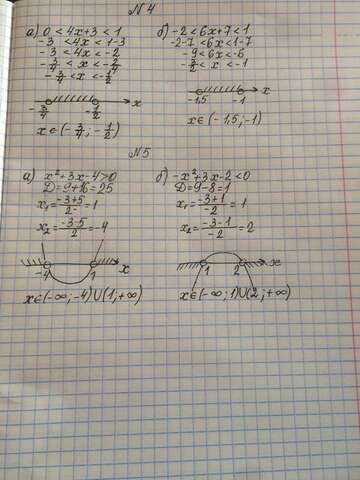 №4
а) 0 < 4x+3 < 1
-3 < 4x < 1-3
-3 < 4x < -2
-3/4 < x < -2/4
-3/4 < x < -1/2
-3/4 -1/2 x
x∈(-3/4; -1/2)
б) -2 < 6x+7 < 1
-2-7 < 6x < 1-7
-9 < 6x < -6
-3/2 < x < -1
-1,5 -1 x
x∈(-1,5; -1)
№5
а) x²+3x-4>0
D=9+16=25
x₁=(-3+5)/2=1
x₂=(-3-5)/2=-4
-4 1 x
x∈(-∞; -4)∪(1; +∞)
б) -x²+3x-2<0
D=9-8=1
x₁=(-3+1)/-2=1
x₂=(-3-1)/-2=2
1 2 x
x∈(-∞; 1)∪(2; +∞)